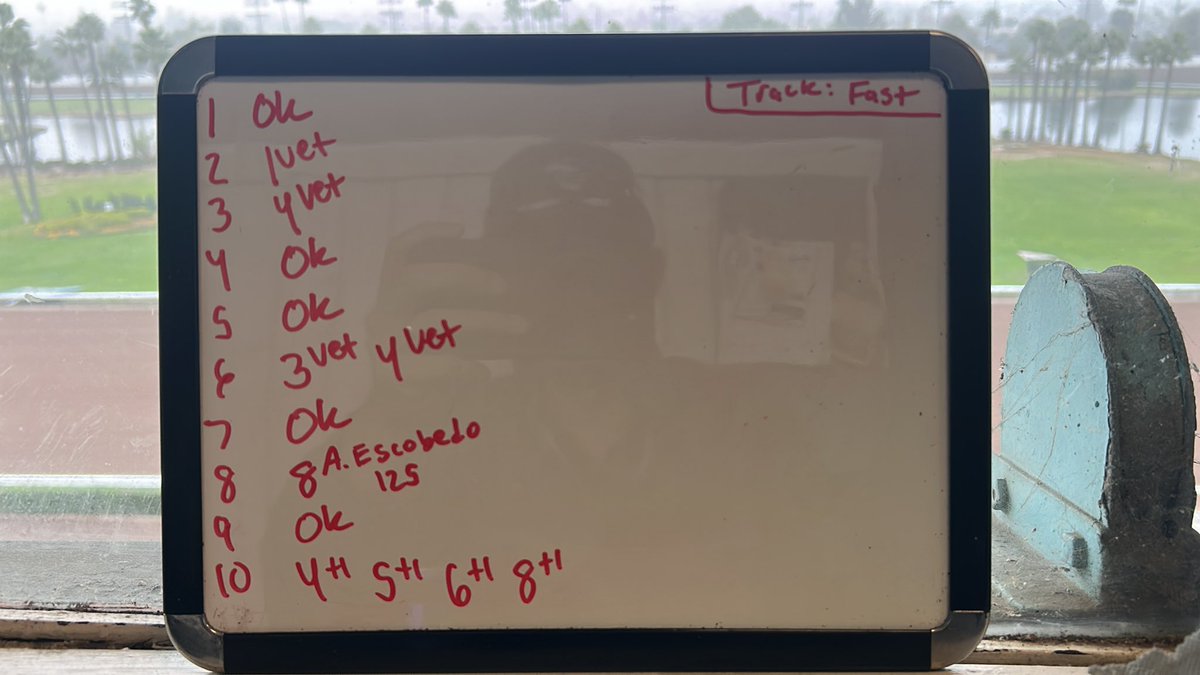 Track: Fast
1 Ok
2 1vet
3 4vet
4 Ok
5 Ok
6 3vet 4vet
7 Ok
8 8 A. Escobedo
125
9 Ok
10 4+1 5+1 6+1 8+1